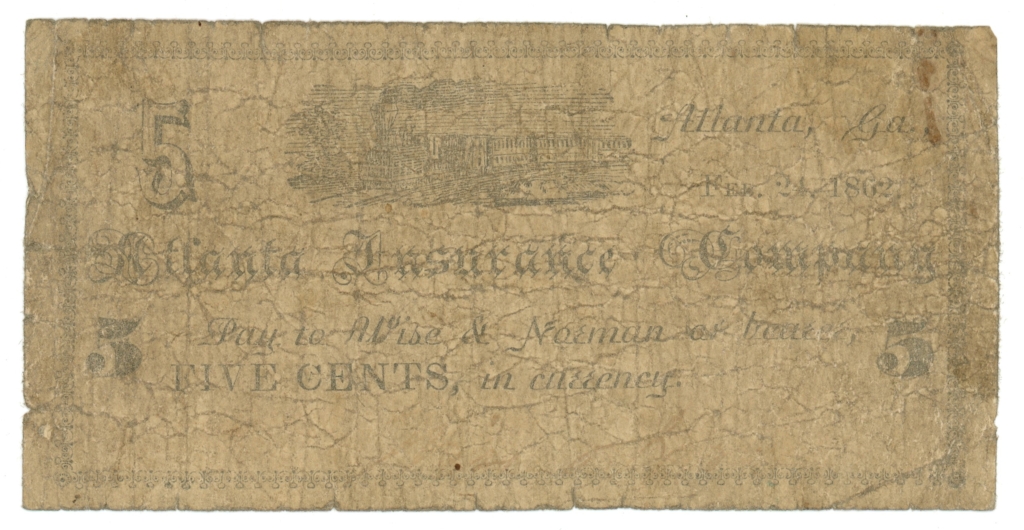 5
Atlanta, Ga.,
FEB. 24, 1862
Atlanta Insurance Company
Pay to Wise & Norman or bearer,
5 5
FIVE CENTS, in currency.